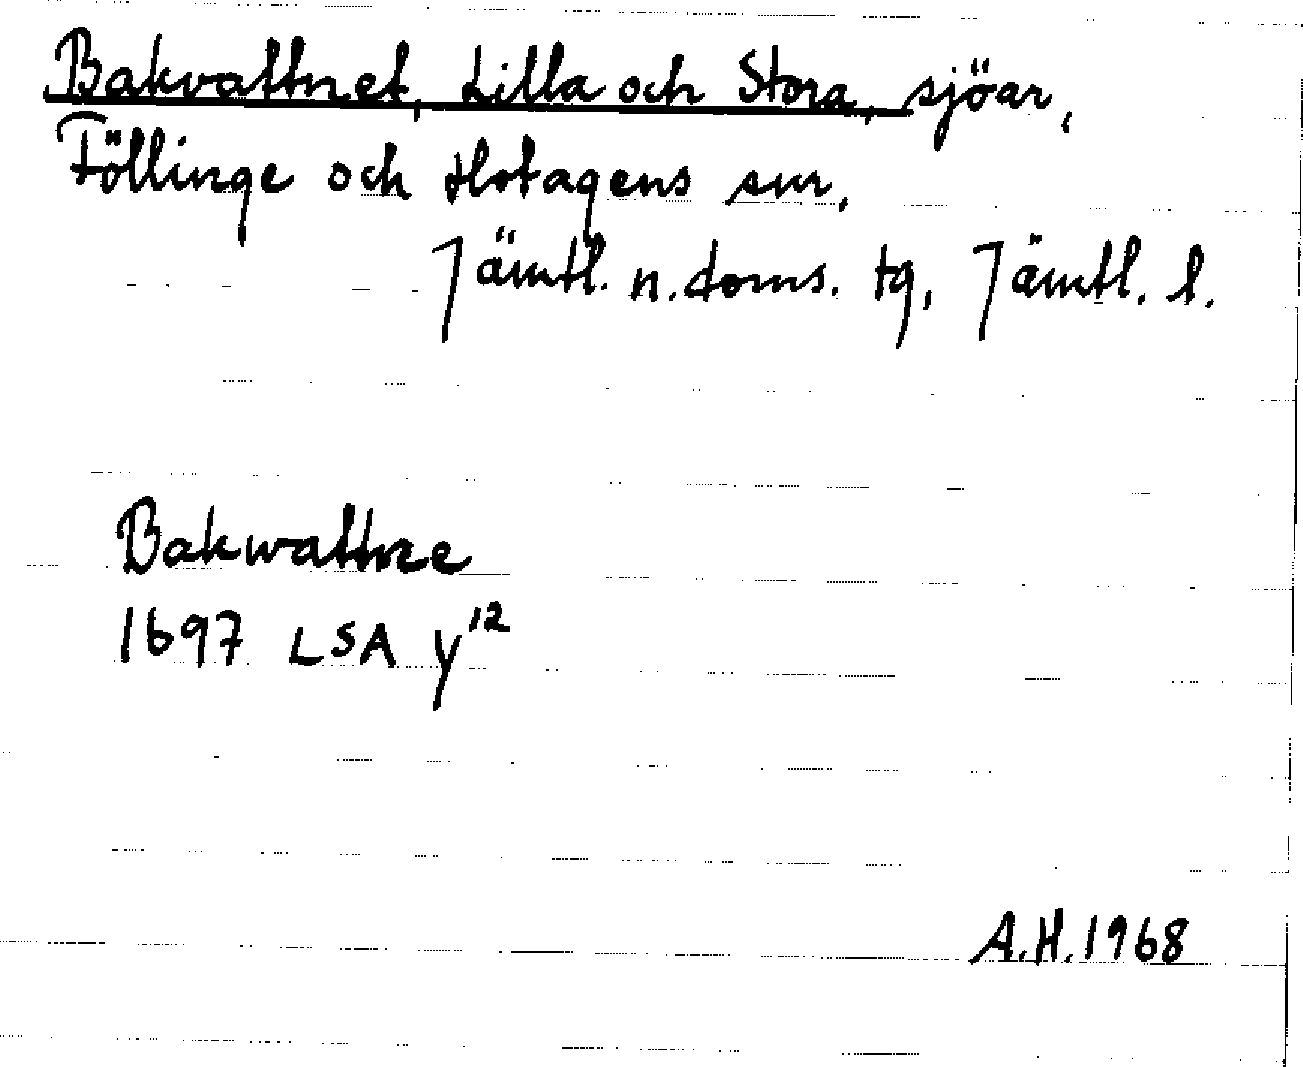 Bakvattnet, Lilla och Stora, sjöar,
Föllinge och Hotagens snr,
Jämtl. n. doms. tg, Jämtl. l.
Bakwattne
1697 LSA y¹²
A.H. 1968